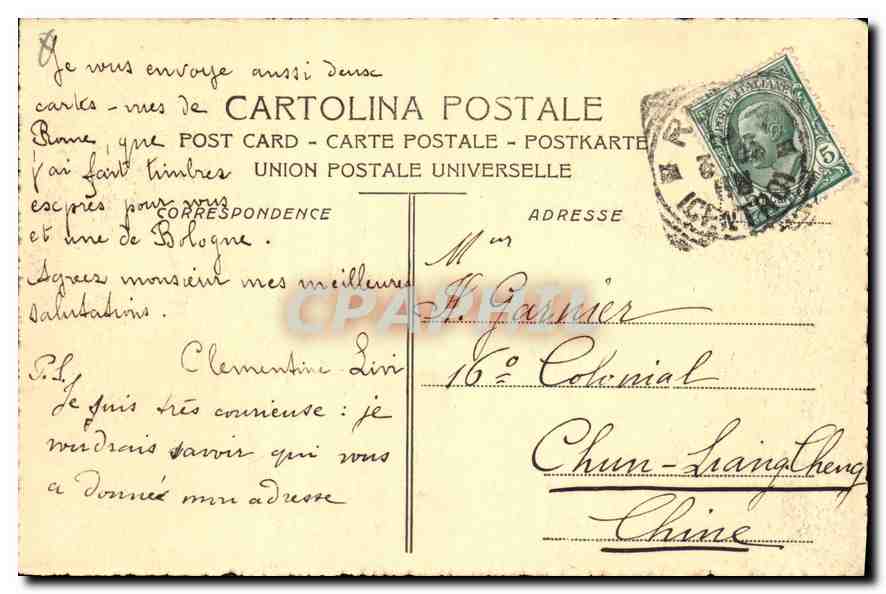 Je vous envoye aussi deux
cartes-vues de
Rome, que
j'ai fait timbres
exprés pour vous
et une de Bologne.
Agreez monsieur mes meilleures
salutations.
Clementine Livi
P.S.
Je suis trés courieuse: je
voudrais savoir qui vous
a donnée mon adresse
CARTOLINA POSTALE
POST CARD - CARTE POSTALE - POSTKARTE
UNION POSTALE UNIVERSELLE
CORRESPONDENCE
ADRESSE
Meur
H. Garnier
16° Colonial
Chun-Liang Cheng
Chine
(CENTRO)
5
CPAPHIL